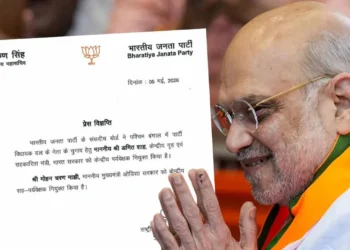 ण सिंह
भारतीय जनता पार्टी
Bharatiya Janata Party
दिनांक : 05 मई, 2026
प्रेस विज्ञप्ति
भारतीय जनता पार्टी के संसदीय बोर्ड ने पश्चिम बंगाल में पार्टी
विधायक दल के नेता के चुनाव हेतु माननीय श्री अमित शाह, केन्द्रीय गृह एवं
सहकारिता मंत्री, भारत सरकार को केन्द्रीय पर्यवेक्षक नियुक्त किया है।
श्री मोहन चरण माझी, माननीय मुख्यमंत्री ओडिशा सरकार को केन्द्रीय
सह-पर्यवेक्षक नियुक्त किया है।